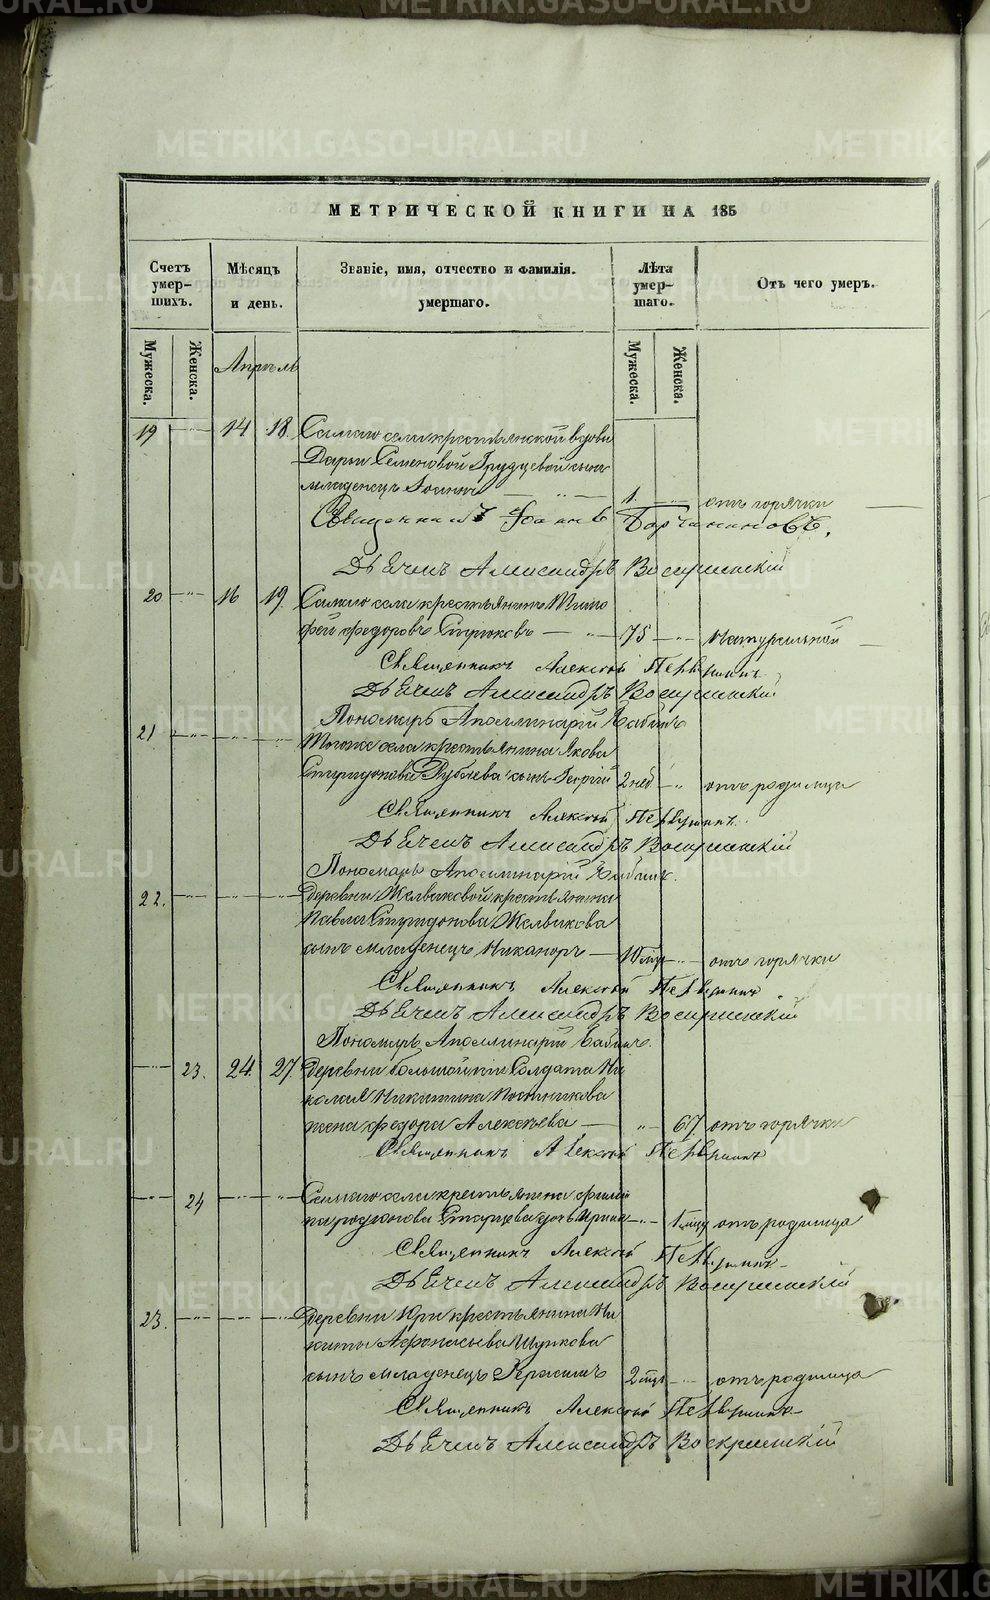 METRIKI.GASO-URAL.RU
МЕТРИЧЕСКОЙ КНИГИ НА 185
Счетъ умер- шихъ.
Мѣсяцъ и день.
Званіе, имя, отчество и фамилія. умершаго.
Лѣта умер- шаго.
Отъ чего умеръ.
Мужеска. Женска. Мужеска. Женска.
Апрѣль
19 14 18. Самаго села крестьянской вдовы
Дарьи Семеновой сына
младенецъ 1. отъ горячки
Священникъ Іоаннъ
Дьячекъ Александръ Воскресенскій
20 16 19. Самаго села крестьянинъ Тимо
фей Федоровъ 75 Натуральной
Священникъ Алексѣй Первушинъ
Дьячекъ Александръ Воскресенскій
Пономарь Аполлинарій Бабинъ
21 Тогоже села крестьянина Якова
Спиридонова сынъ Георгій 2 нед отъ родимца
Священникъ Алексѣй Первушинъ.
Дьячекъ Александръ Воскресенскій
Пономарь Аполлинарій Бабинъ.
22. Деревни Желваковой крестьянина
Павла Спиридонова Желвакова
сынъ младенецъ Никаноръ отъ горячки
Священникъ Алексѣй Первушинъ
Дьячекъ Александръ Воскресенскій
Пономарь Аполлинарій Бабинъ.
23. 24. 27. Деревни Солдата Ни
колая Никитина Постникова
жена Федора Алексѣева 67 отъ горячки
Священникъ Алексѣй Первушинъ
24 Самаго села крестьянина Филип
па Родионова Старцева дочь Ирина 1 мцъ отъ родимца
Священникъ Алексѣй Первушинъ
Дьячекъ Александръ Воскресенскій
23. Деревни крестьянина Ни
киты Афонасьева Шункова
сынъ младенецъ Герасимъ 2 мцъ отъ родимца
Священникъ Алексѣй Первушинъ
Дьячекъ Александръ Воскресенскій